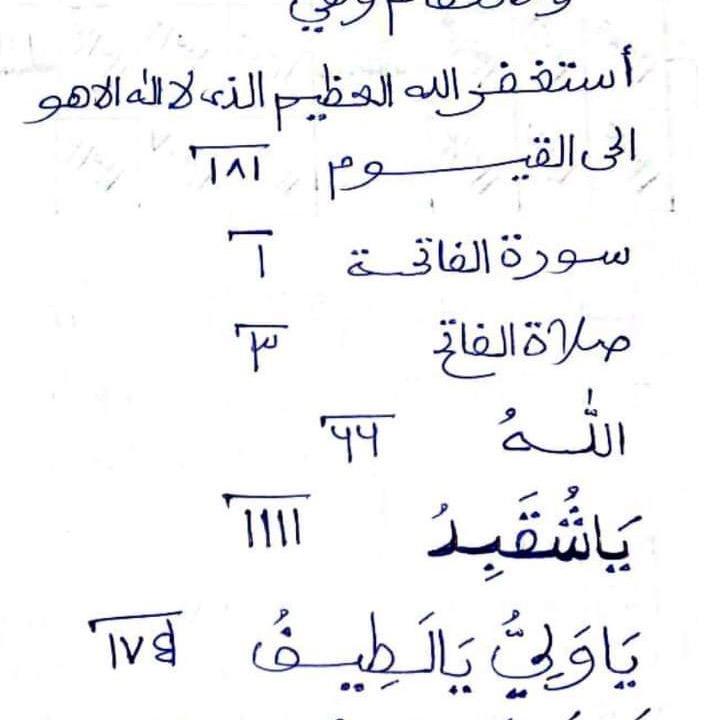 وهي
أستغفر الله العظيم الذى لا اله الا هو
الحى القيـــوم ١٨١
سورة الفاتحة ١
صلاة الفاتح ٣
اللهُ ٦٦
يَاشُقَبِدُ ١١١١
يَا وَلِيُّ يَالَطِيفُ ١٧٥